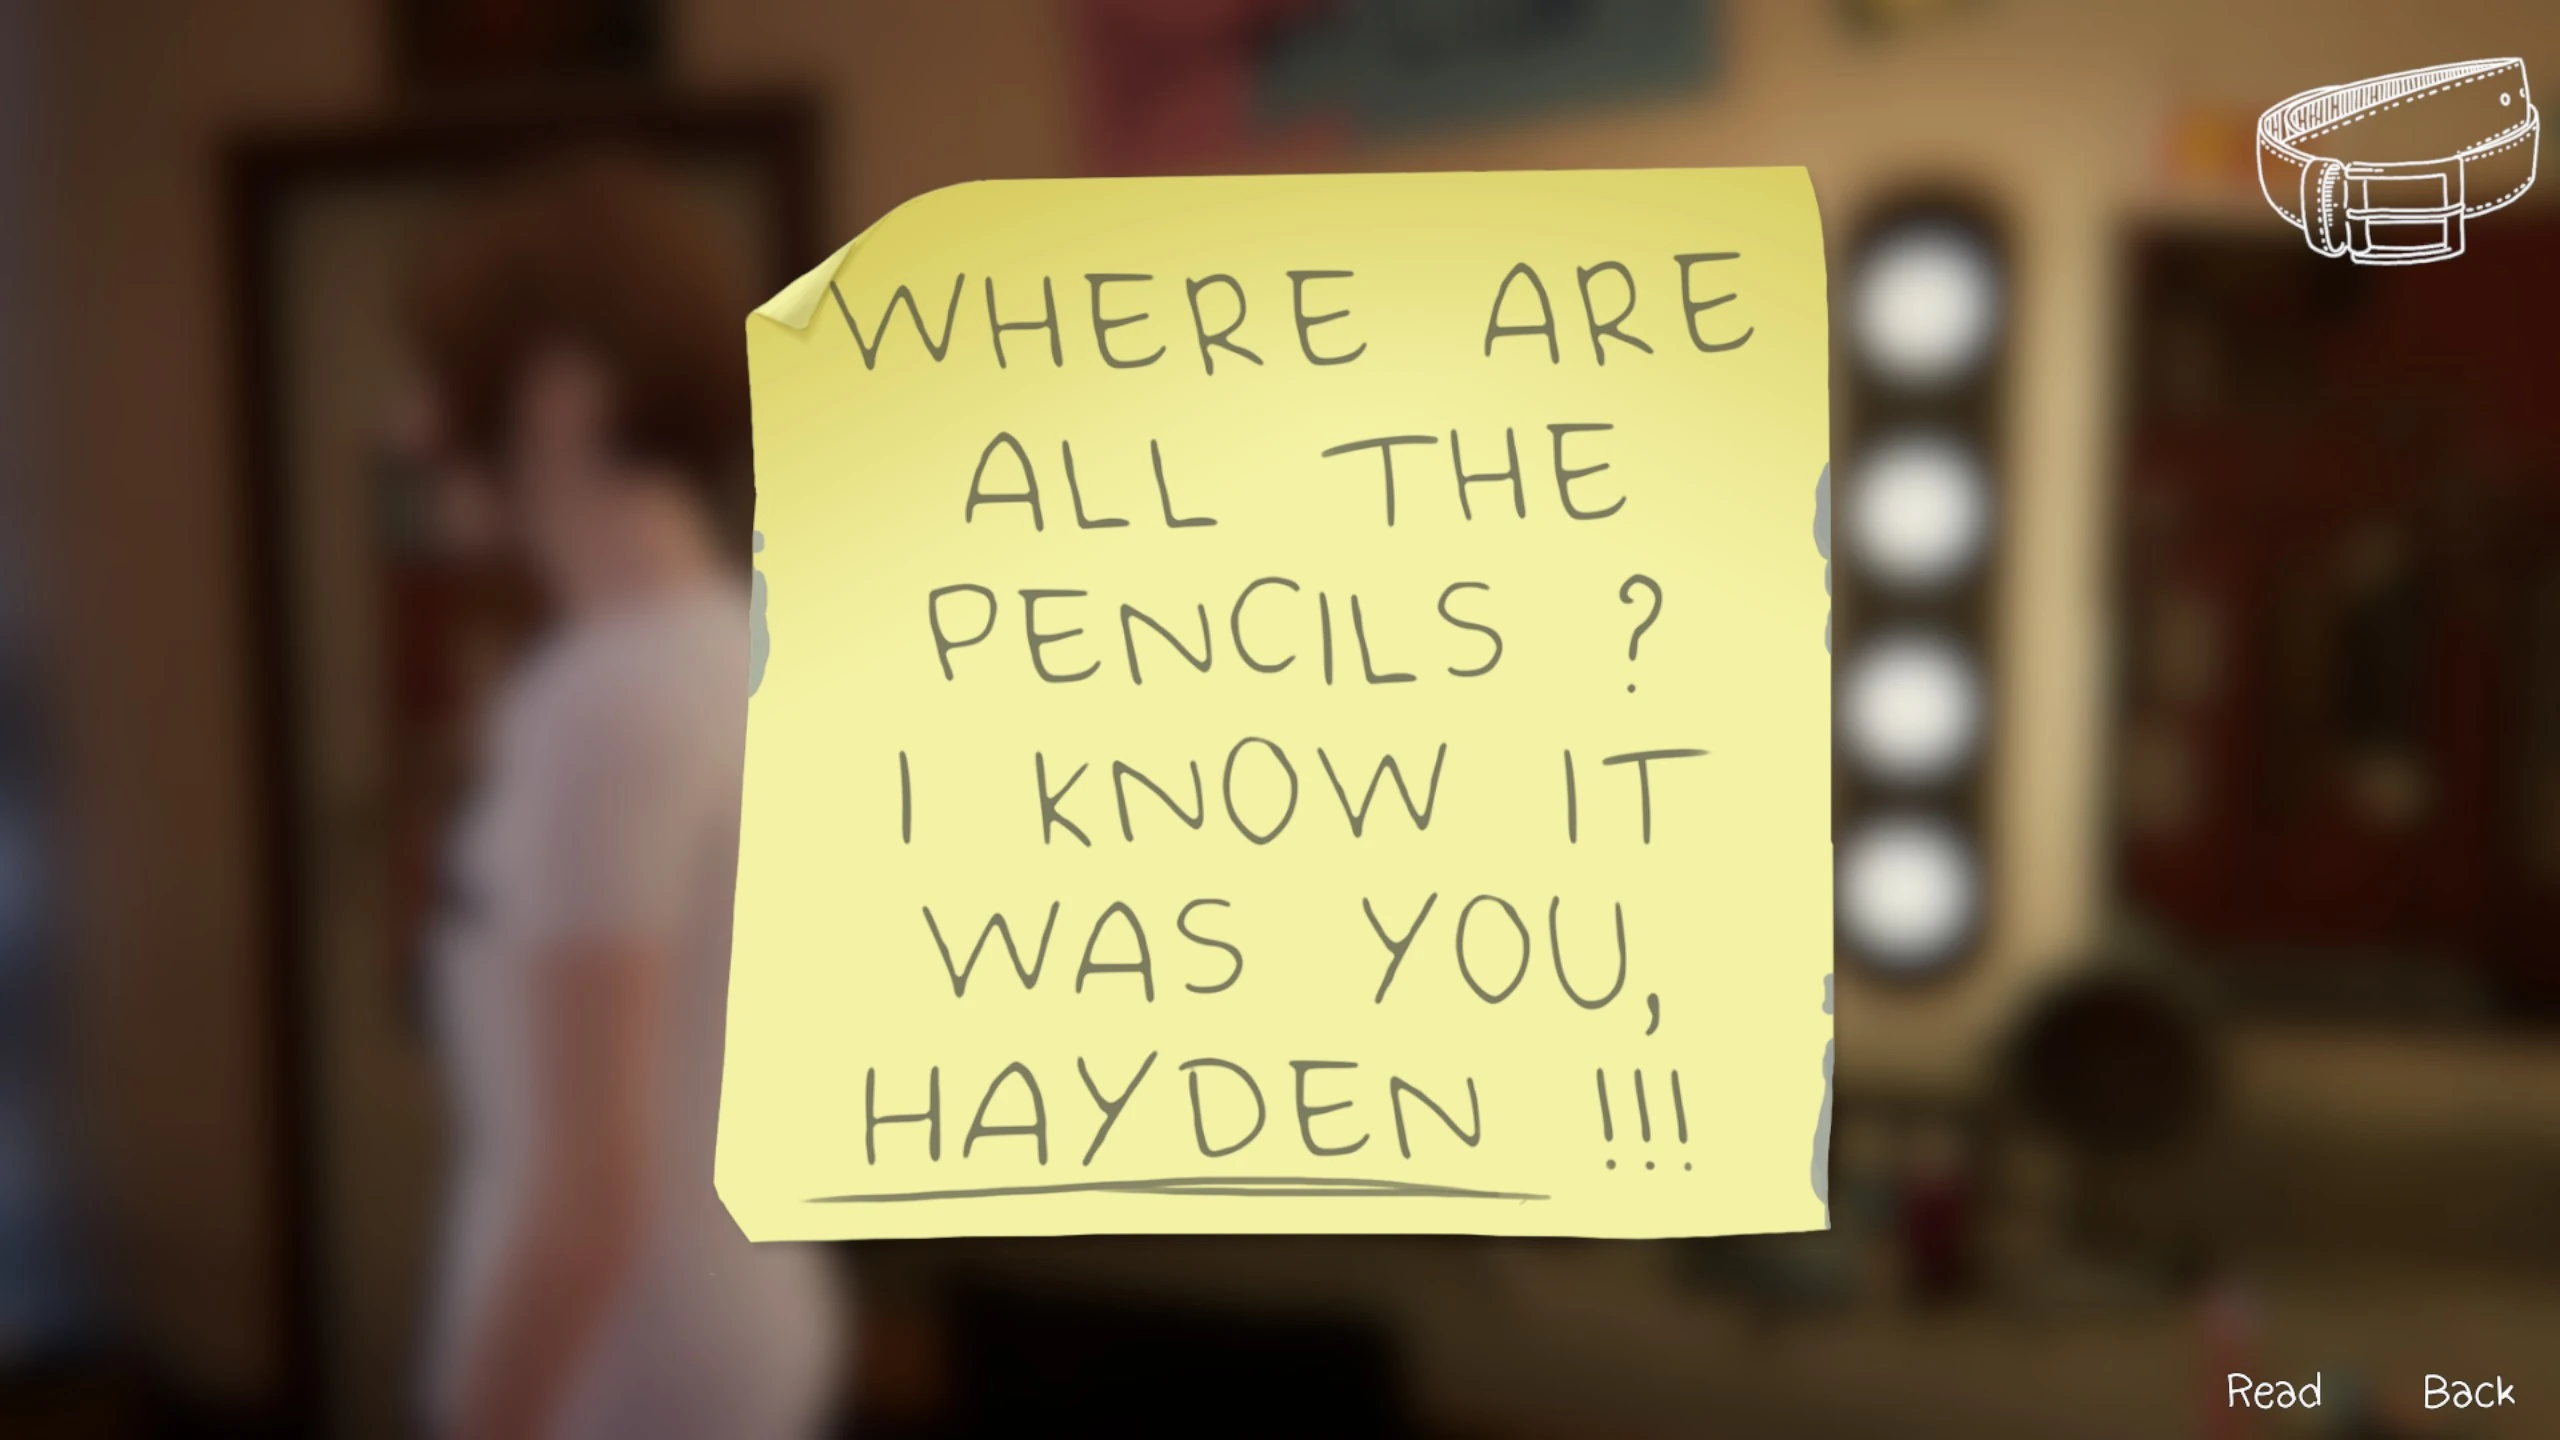 WHERE ARE
ALL THE
PENCILS ?
I KNOW IT
WAS YOU,
HAYDEN !!!
Read
Back